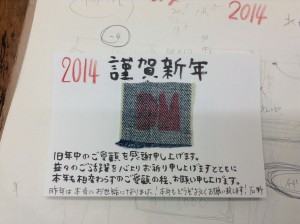 2014
-4
2014 謹賀新年
BM
旧年中のご愛顧を感謝申し上げます。
益々のご活躍を心よりお祈り申し上げますとともに
本年も相変わらずのご愛顧の程、お願い申し上げます。
昨年は本当にお世話になりました! 本年もどうぞよろしくお願い致します!